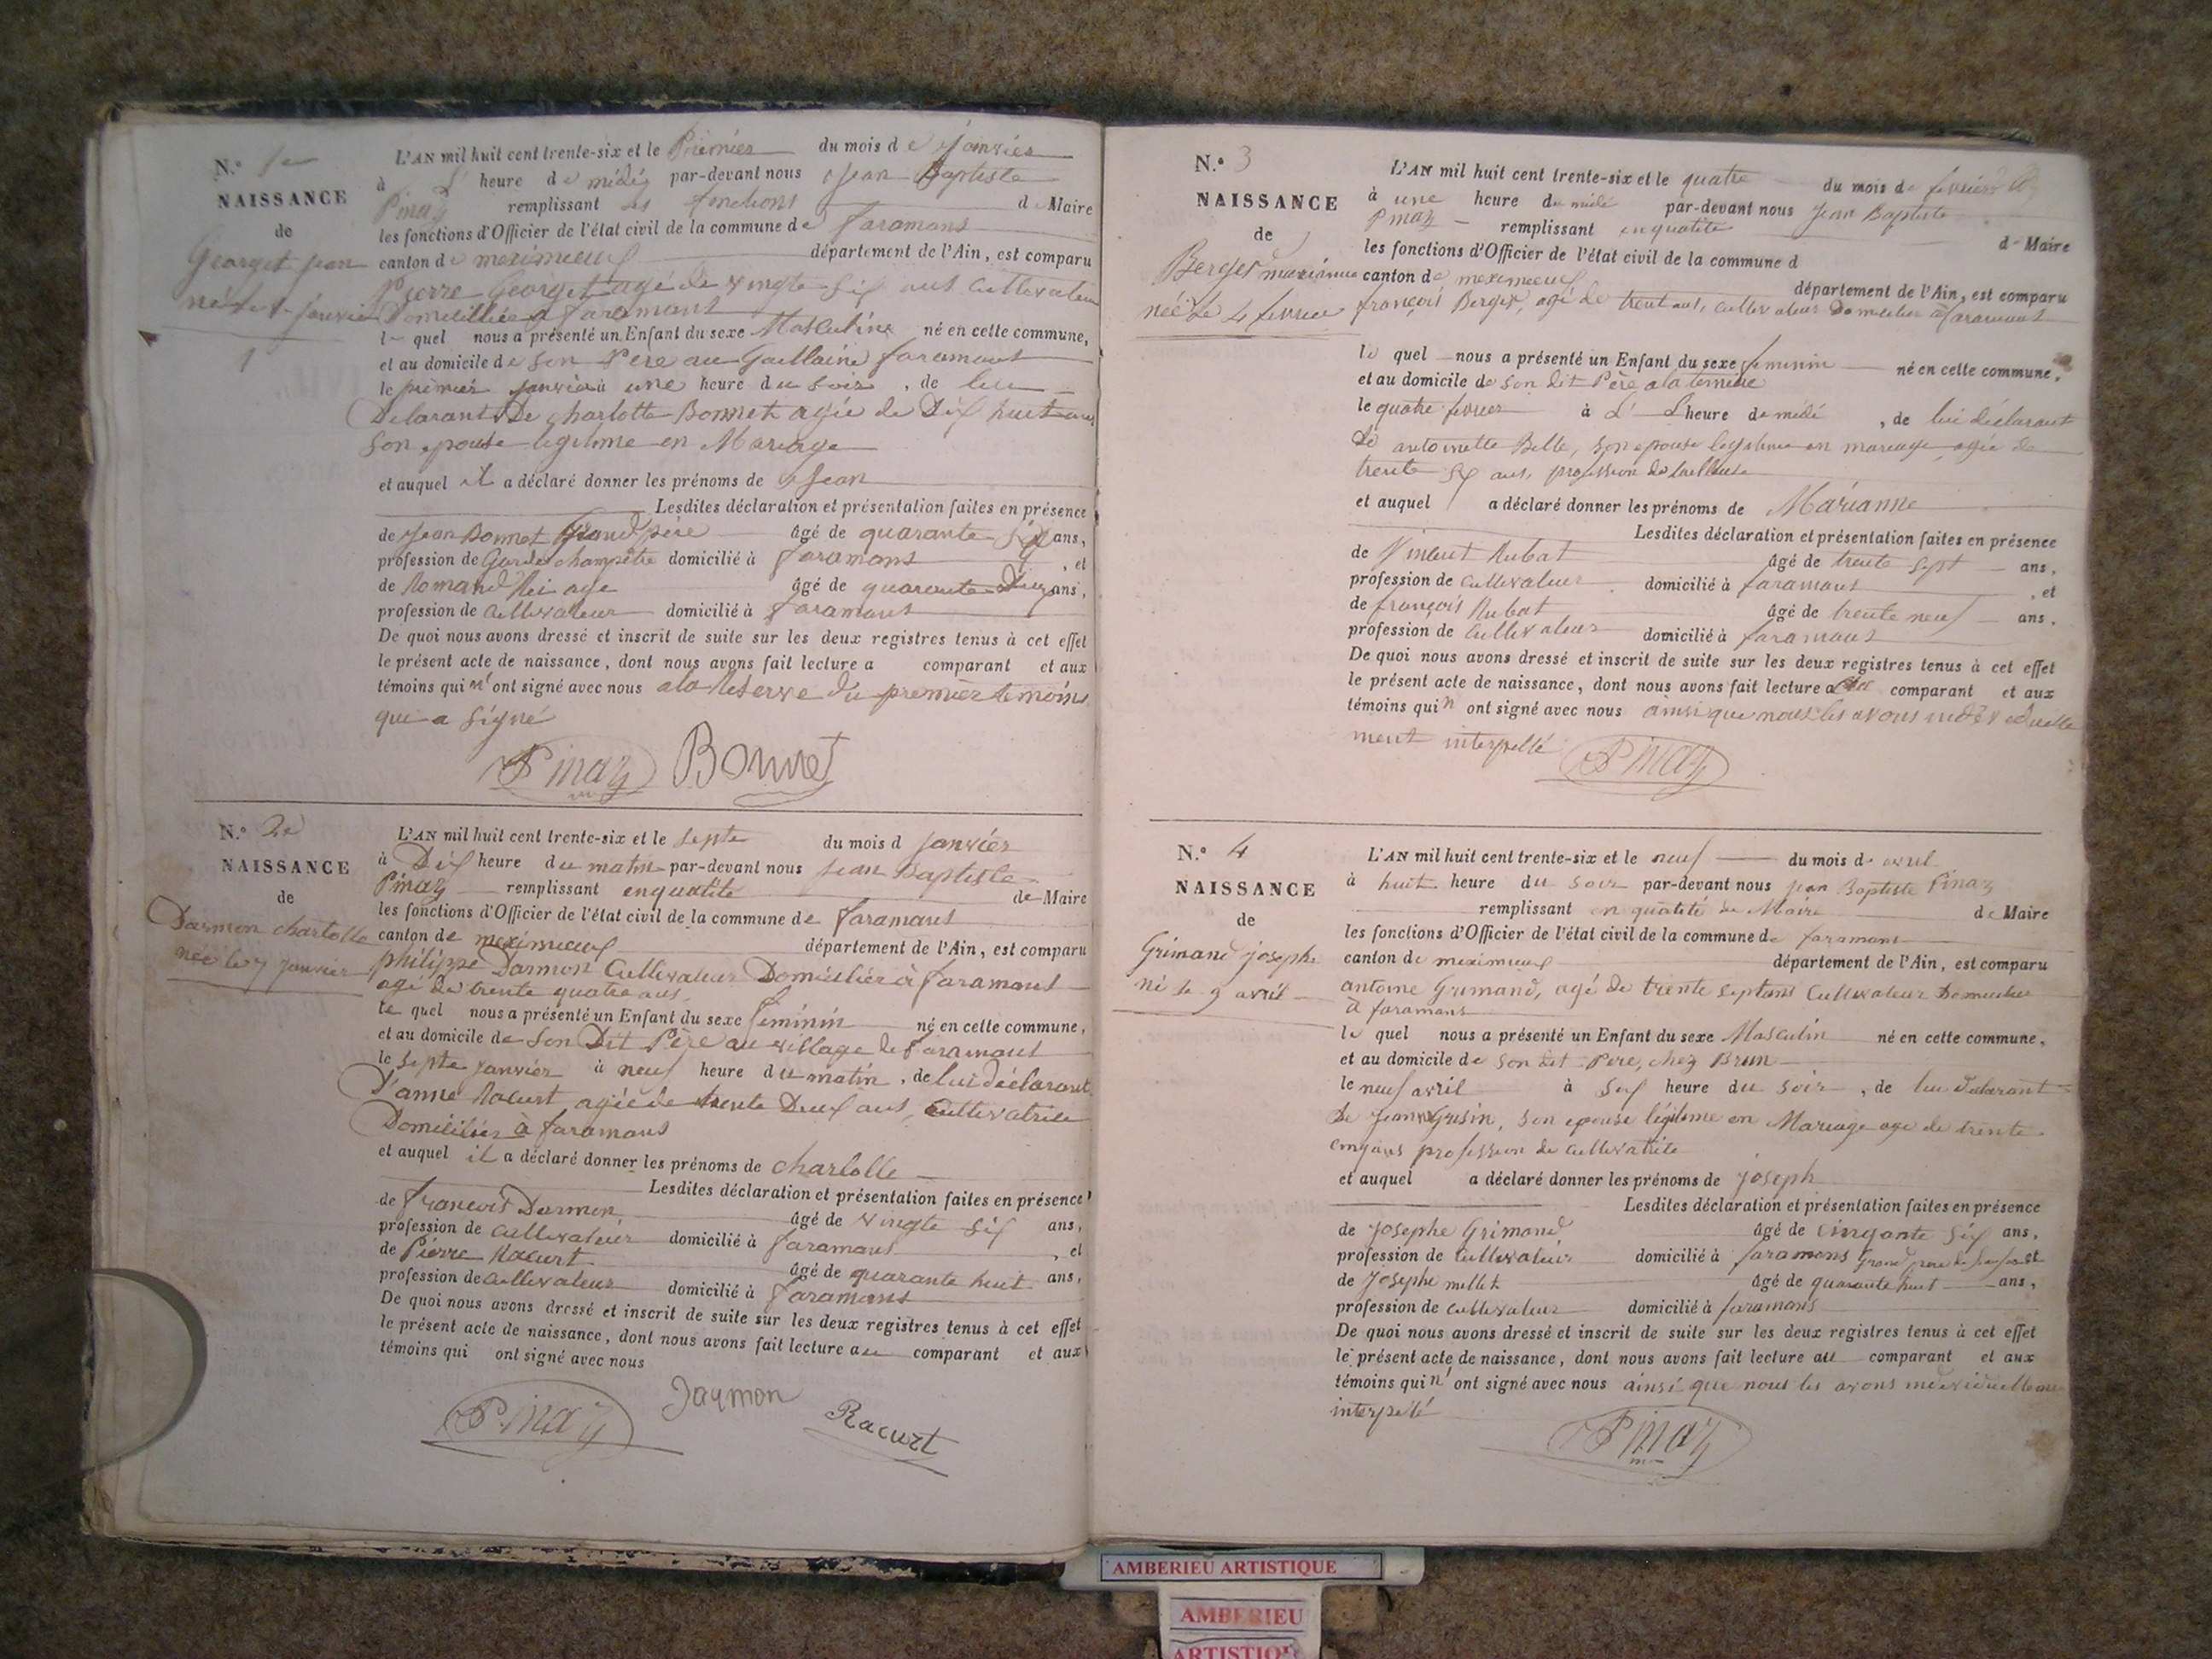 N.º 1er
NAISSANCE
de
Georget jean
né le 1 janvier
1
L'AN mil huit cent trente-six et le Premier du mois de janvier
à heure de midi par-devant nous Jean Baptiste
Pinaz remplissant les fonctions de Maire
les fonctions d'Officier de l'état civil de la commune de faramans
canton de meximieux département de l'Ain, est comparu
Pierre Georget agé de vingte six ans Cultivateur
Domicilier a faramans
le quel nous a présenté un Enfant du sexe Masculine né en cette commune,
et au domicile de son Pere au faramans
le premier janvier à une heure du soir, de lui
Delarant De charlotte Bonnet agée de Dix huit ans
son epouse legitime en Mariage
et auquel il a déclaré donner les prénoms de Jean
Lesdites déclaration et présentation faites en présence
de Jean Bonnet Grand père âgé de quarante six ans,
profession de Garde champêtre domicilié à faramans, et
de Romand âgé de quarante Deux ans,
profession de Cultivateur domicilié à faramans
De quoi nous avons dressé et inscrit de suite sur les deux registres tenus à cet effet
le présent acte de naissance, dont nous avons fait lecture a comparant et aux
témoins qui n'ont signé avec nous a la Reserve du premier temoins
que a signé
Pinaz Bonnet
N.º 2e
NAISSANCE
de
Darmon charlotte
née le 7 janvier
L'AN mil huit cent trente-six et le septe du mois d janvier
à Dix heure du matin par-devant nous jean Baptiste
Pinaz remplissant enqualité de Maire
les fonctions d'Officier de l'état civil de la commune de faramans
canton de meximieux département de l'Ain, est comparu
philippe Darmon Cultivateur Domicilier à faramans
agé de trente quatre ans
le quel nous a présenté un Enfant du sexe feminin né en cette commune,
et au domicile de son Dit Père au village de faramans
le septe janvier à neuf heure du matin, de lui déclarant
D'anne Racurt agée de trente Deux ans, Cultivatrice
Domicilier à faramans
et auquel il a déclaré donner les prénoms de charlotte
Lesdites déclaration et présentation faites en présence
de francois Darmon âgé de vingte six ans,
profession de cultivateur domicilié à faramans, et
de Pierre Racurt âgé de quarante huit ans,
profession de cultivateur domicilié à faramans
De quoi nous avons dressé et inscrit de suite sur les deux registres tenus à cet effet
le présent acte de naissance, dont nous avons fait lecture au comparant et aux
témoins qui ont signé avec nous
Pinaz Jaymon Racurt
N.º 3
NAISSANCE
de
Berger marianne
née le 4 fevrier
L'AN mil huit cent trente-six et le quatre du mois de fevrier
à une heure du midi par-devant nous Jean Baptiste
Pinaz remplissant enqualité de Maire
les fonctions d'Officier de l'état civil de la commune d
canton de meximieux département de l'Ain, est comparu
françois Berger, agé de trent ans, cultivateur Domicilier à faramans
le quel nous a présenté un Enfant du sexe feminin né en cette commune,
et au domicile de son dit Père a la
le quatre fevrier à L' heure de midi, de lui déclarant
De antoinette Belle, son epouse legitime en mariage agée de
trente six ans, profession de tailleuse
et auquel a déclaré donner les prénoms de Marianne
Lesdites déclaration et présentation faites en présence
de Vincent Rubat âgé de trente sept ans,
profession de cultivateur domicilié à faramans, et
de françois Rubat âgé de trente neuf ans,
profession de Cultivateur domicilié à faramans
De quoi nous avons dressé et inscrit de suite sur les deux registres tenus à cet effet
le présent acte de naissance, dont nous avons fait lecture a comparant et aux
témoins qui n ont signé avec nous ainsi que nous les avons individuelle
ment interpellé
Pinaz
N.º 4
NAISSANCE
de
Grimand josephe
né le 9 avril
L'AN mil huit cent trente-six et le neuf du mois de avril
à huit heure du soir par-devant nous jean Baptiste Pinaz
remplissant en qualité de Maire de Maire
les fonctions d'Officier de l'état civil de la commune de faramans
canton de meximieux département de l'Ain, est comparu
antoine Grimand, agé de trente septans Cultivateur Domicilier
à faramans
le quel nous a présenté un Enfant du sexe Masculin né en cette commune,
et au domicile de son dit Pere, chez Brun
le neuf avril à six heure du soir, de lui Delarant
De Jeanne Grisin, son epouse légitime en Mariage age de trente
cinqans profession de cultivatrice
et auquel a déclaré donner les prénoms de joseph
Lesdites déclaration et présentation faites en présence
de Josephe Grimand âgé de cinqante six ans,
profession de Cultivateur domicilié à faramans Grand pere de l'enfant et
de Josephe millet âgé de quarante huit ans,
profession de cultivateur domicilié à faramans
De quoi nous avons dressé et inscrit de suite sur les deux registres tenus à cet effet
le présent acte de naissance, dont nous avons fait lecture au comparant et aux
témoins qui n' ont signé avec nous ainsi que nous les avons individuellement
interpelé
Pinaz
AMBERIEU ARTISTIQUE
AMBERIEU
ARTISTIQUE